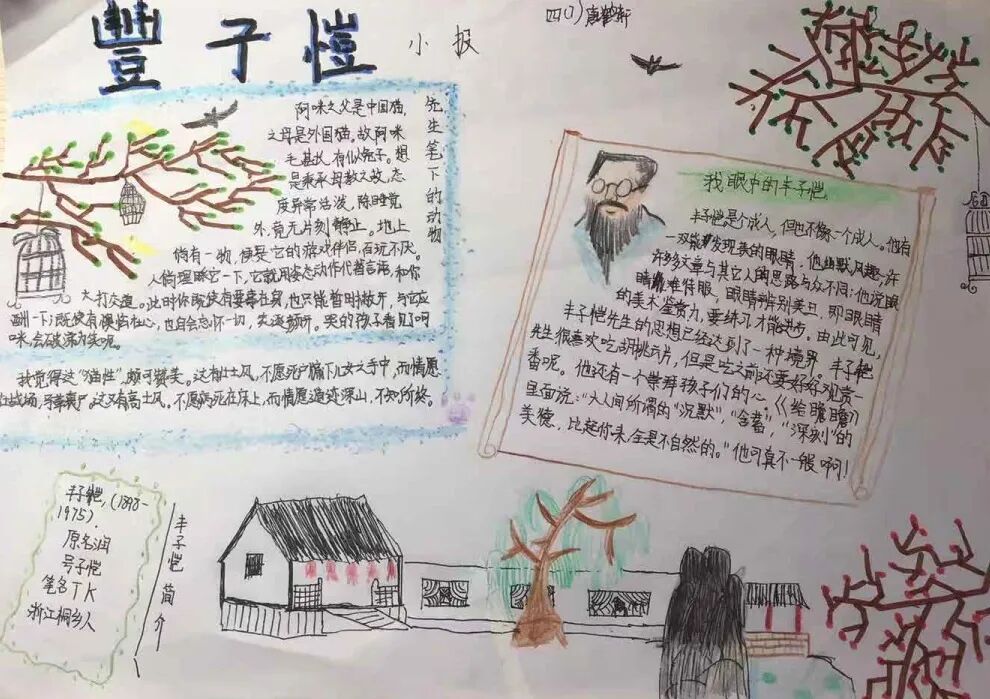 豐子恺
小报
四(1)
先生笔下的动物
阿咪之父是中国猫,
之母是外国猫。故阿咪
毛甚长,有似兔子。想
是秉承母教之故,态
度异常活泼,除睡觉
外,竟无片刻静止。地上
倘有一物,便是它的游戏伴侣,百玩不厌。
人倘理睬它一下,它就用姿态动作代替言语,和你
大打交道。此时你既使有要事在身,也只能暂时撇开,与它应
酬一下;既使有懊恼在心,也自会忘怀一切,笑逐颜开。哭的孩子看见了阿
咪,会破涕为笑呢。
我觉得这“猫性”,颇可赞美。这有壮士风,不愿死户牖下儿女之手中,而情愿
战场,马革裹尸。这又有高士风。不愿病死在床上,而情愿遁迹深山,不知所终。
我眼中的丰子恺
丰子恺是个成人,但也不像一个成人。他有
一双能发现美的眼睛,他幽默风趣;许
许多多文章与其它人的思路与众不同;他说眼
睛难特服,眼睛辨别美丑,即眼睛
的美术鉴赏力,要练习才能进步。由此可见,
丰子恺先生的思想已经达到了一种境界。丰子恺
先生很喜欢吃胡桃云片,但是吃之前还要好好观赏一
番呢。他还有一个崇拜孩子们的心,《给瞻瞻》
里面说:“大人间所谓的“沉默”,“含蓄”,“深刻”的
美德,比起你来,全是不自然的。”他可真不一般啊!
丰子恺,(1898-
1975).
原名润
号子恺
笔名TK
浙江桐乡人
丰子恺简介